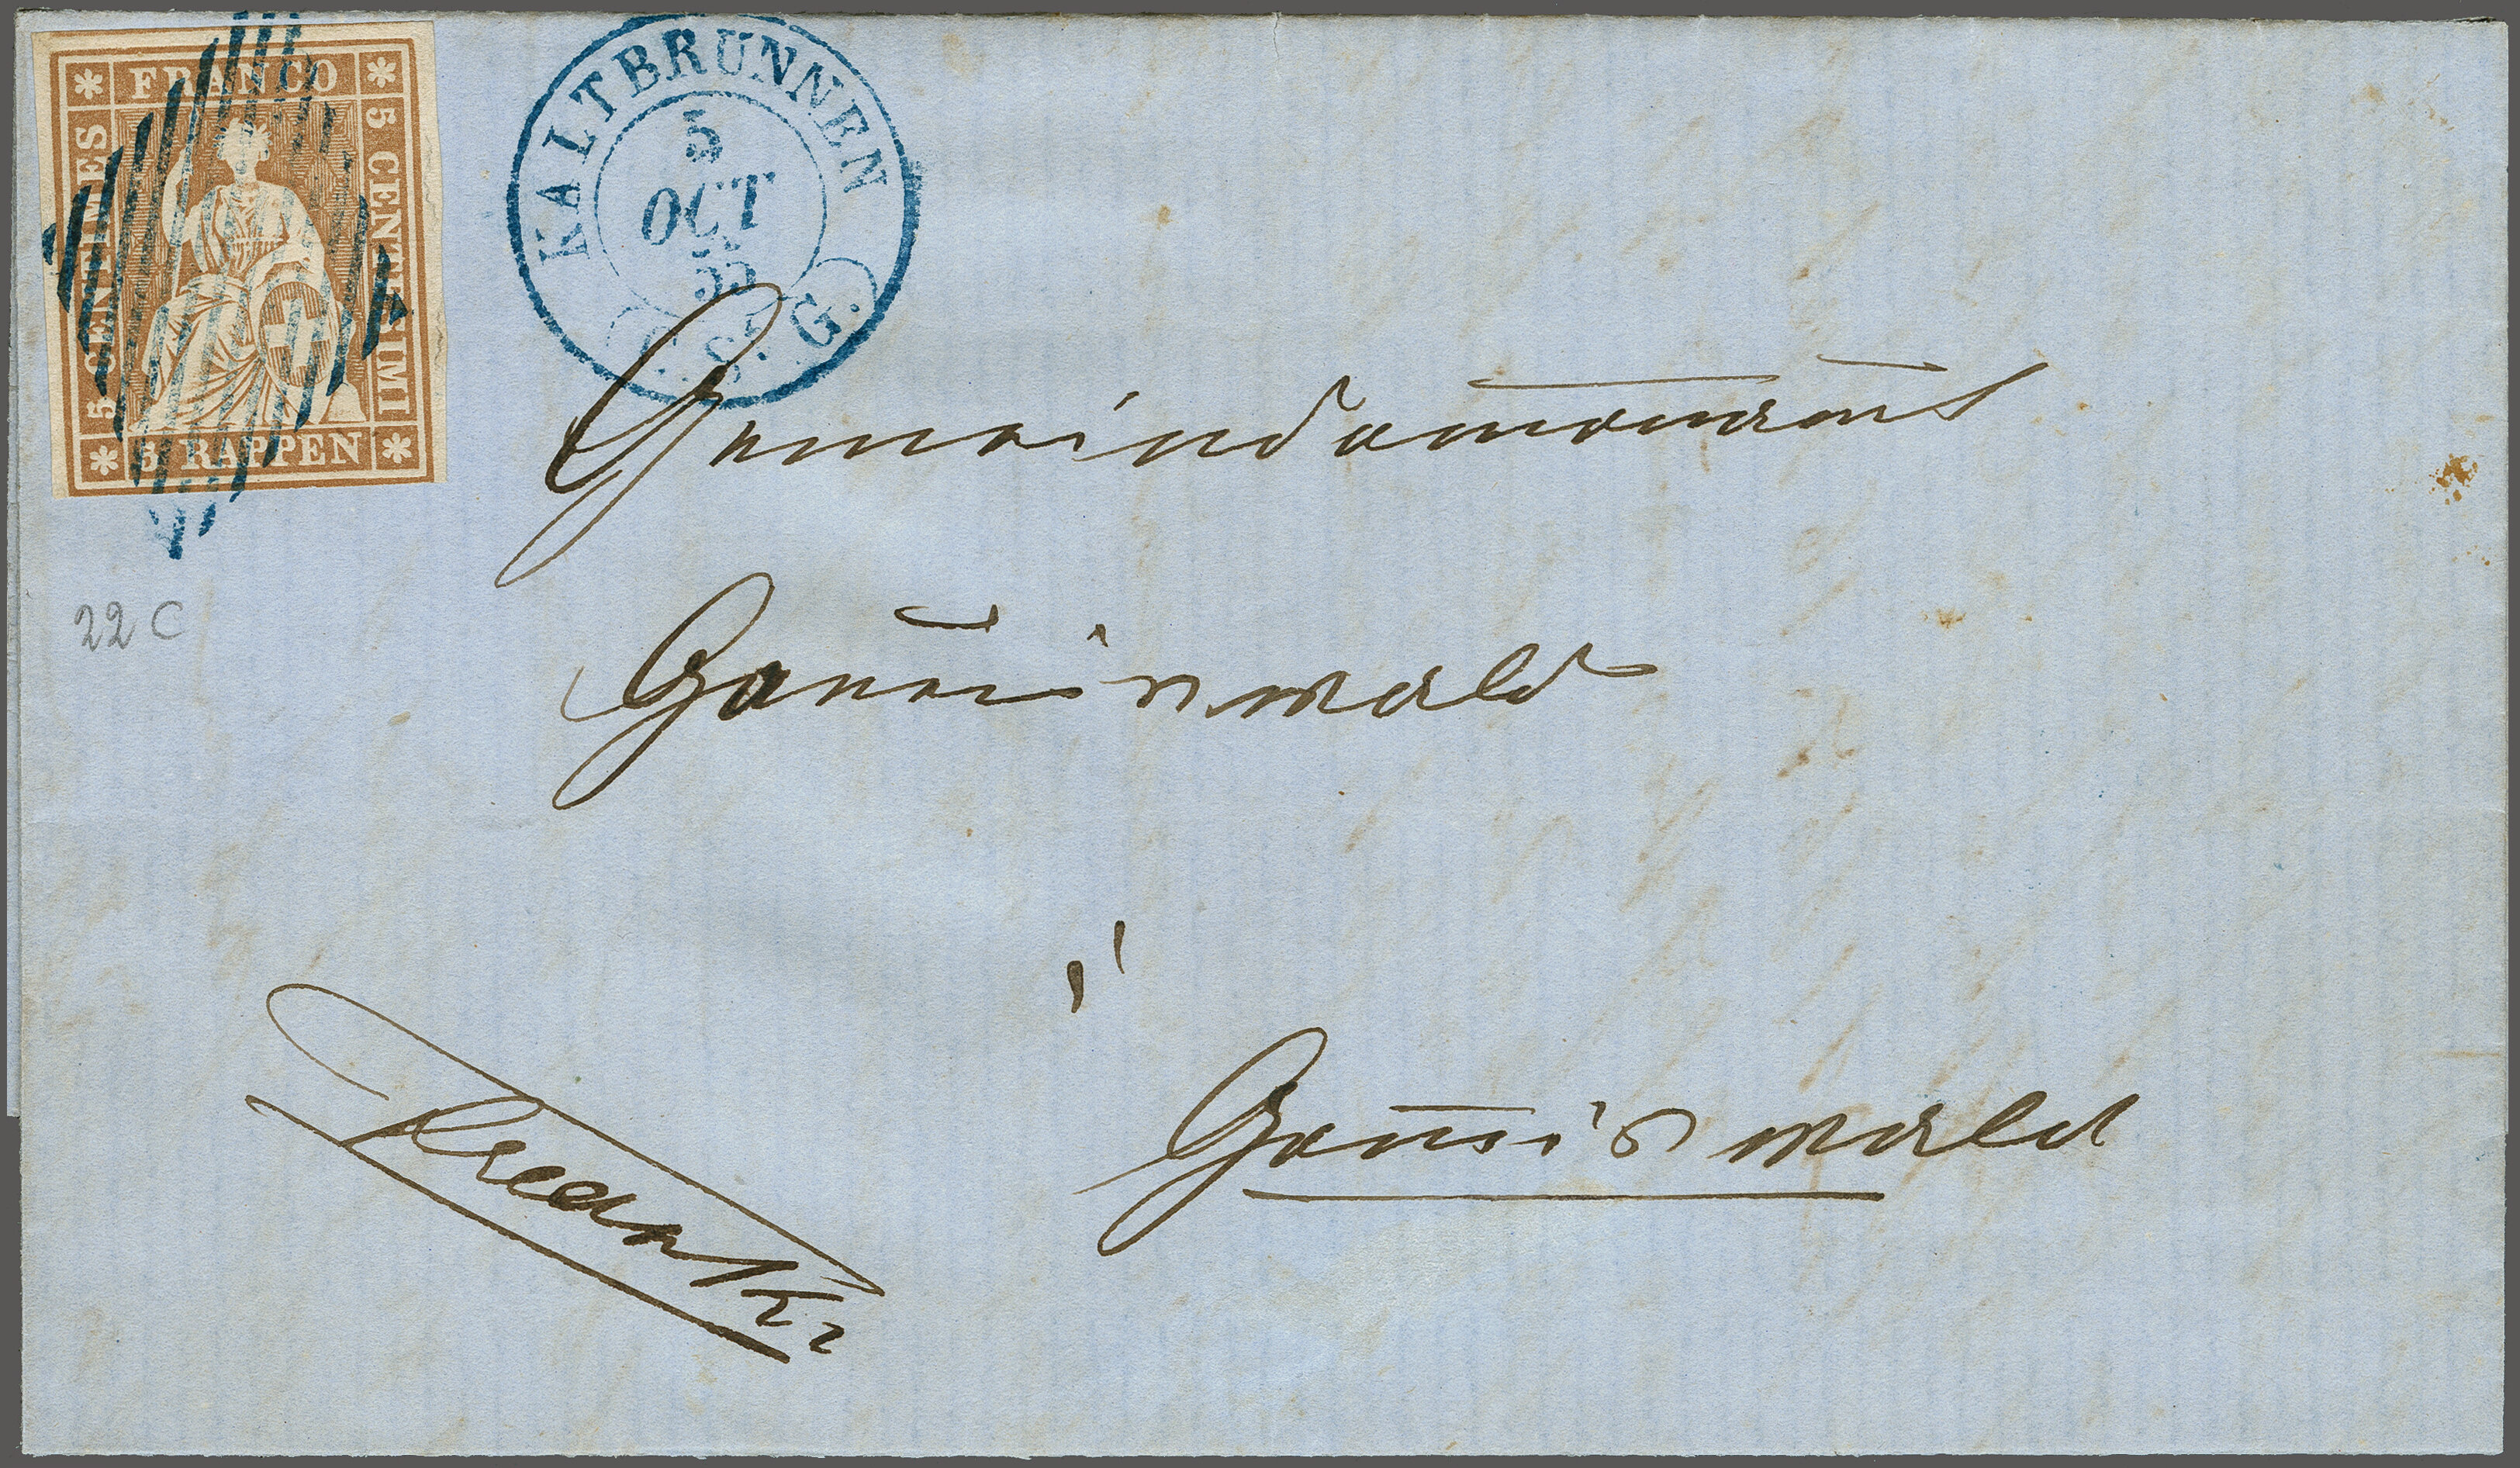 FRANCO
5 CENTIMES
5 CENTESIMI
5 RAPPEN
KALTBRUNNEN
5
OCT
55
(S.G.)
22 C
Gommiswald
Gommiswald